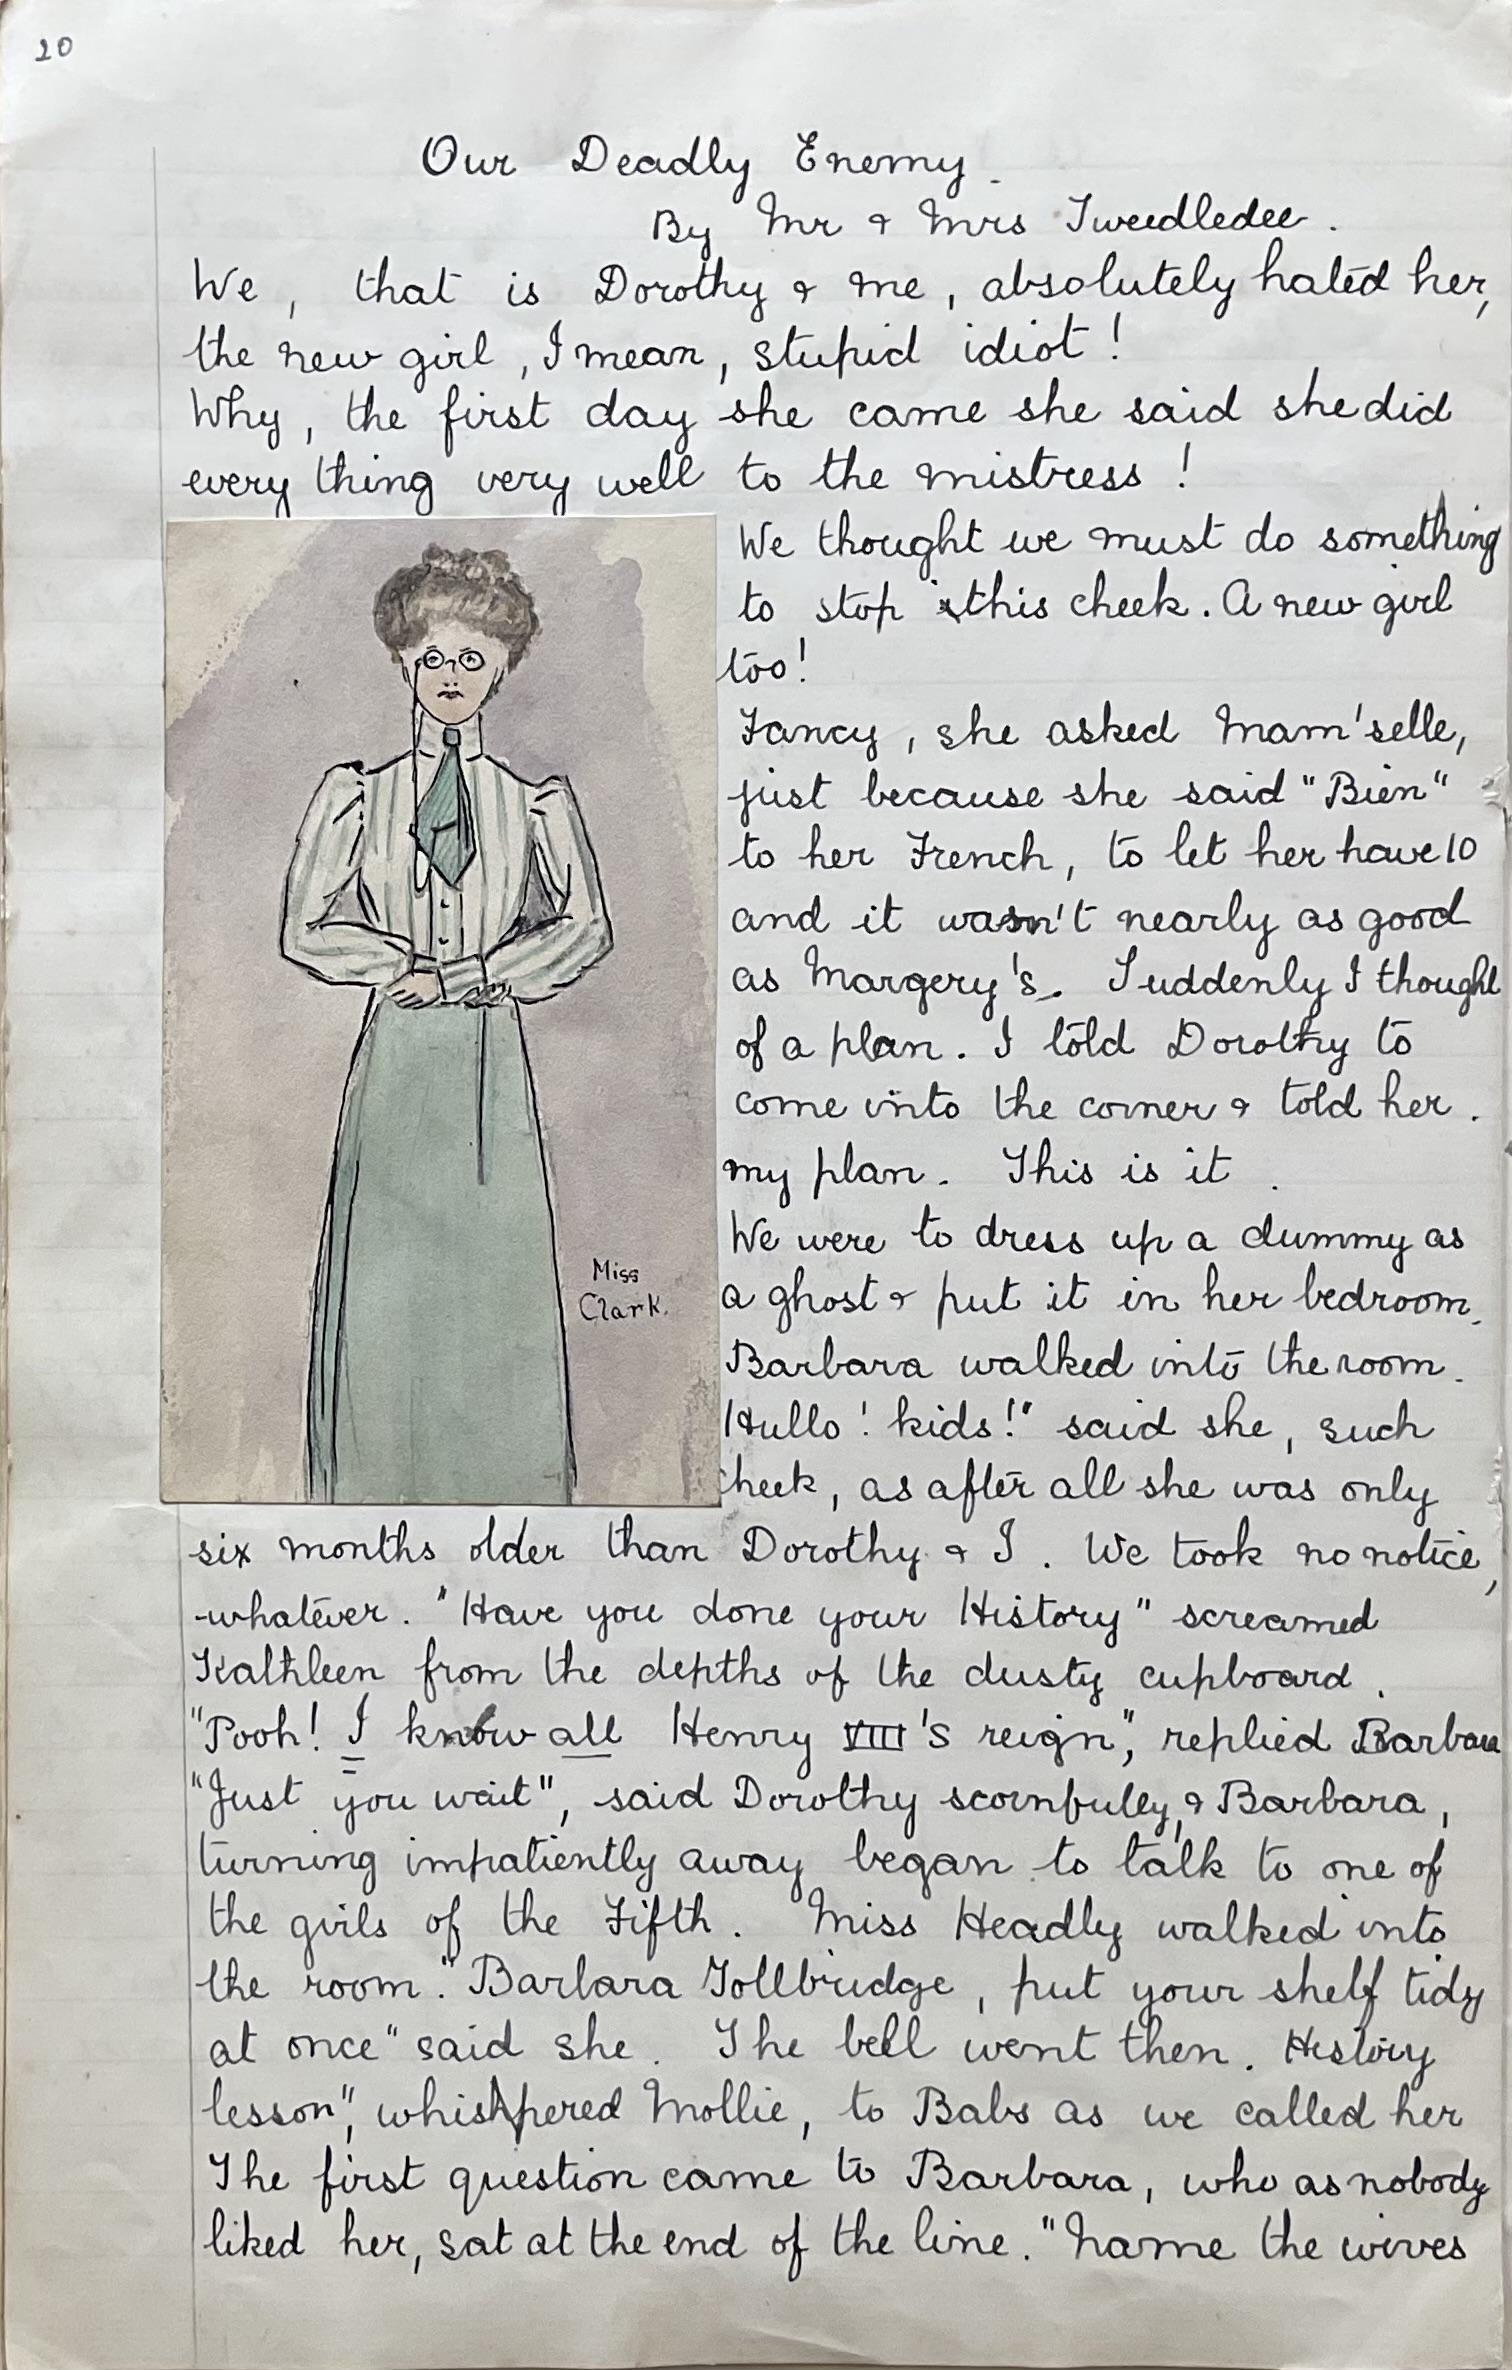 20
Our Deadly Enemy.
By Mr & Mrs Tweedledee.
We, that is Dorothy & me, absolutely hated her,
the new girl, I mean, stupid idiot!
Why, the first day she came she said she did
every thing very well to the mistress!
We thought we must do something
to stop this cheek. A new girl
too!
Fancy, she asked Mam'selle,
just because she said "Bien"
to her French, to let her have 10
and it wasn't nearly as good
as Margery's. Suddenly I thought
of a plan. I told Dorothy to
come into the corner & told her.
my plan. This is it.
We were to dress up a dummy as
a ghost & put it in her bedroom.
Barbara walked into the room.
Hullo! kids!" said she, such
cheek, as after all she was only
Miss
Clark.
six months older than Dorothy & I. We took no notice,
whatever. "Have you done your History" screamed
Kathleen from the depths of the dusty cupboard.
"Pooh! I know all Henry VIII's reign", replied Barbara
"Just you wait", said Dorothy scornfully, & Barbara,
turning impatiently away began to talk to one of
the girls of the Fifth. Miss Headly walked into
the room. "Barbara Tollbridge, put your shelf tidy
at once" said she. The bell went then. History
lesson", whispered Mollie, to Babs as we called her
The first question came to Barbara, who as nobody
liked her, sat at the end of the line. "Name the wives